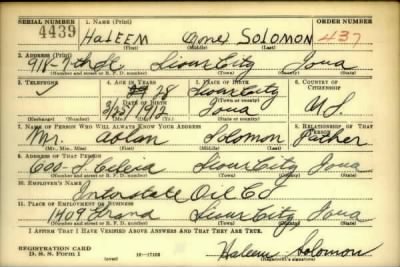 SERIAL NUMBER 1. NAME (Print) ORDER NUMBER
4439 HALEEM (None) SOLOMON 437
(First) (Middle) (Last)
2. ADDRESS (Print)
918-7th St. Sioux City Iowa
(Number and street or R. F. D. number) (Town) (County) (State)
3. TELEPHONE 4. AGE IN YEARS 5. PLACE OF BIRTH 6. COUNTRY OF CITIZENSHIP
28 Sioux City
DATE OF BIRTH (Town or county)
3/25/1912 Iowa U.S.
(Exchange) (Number) (Mo.) (Day) (Yr.) (State or country)
7. NAME OF PERSON WHO WILL ALWAYS KNOW YOUR ADDRESS 8. RELATIONSHIP OF THAT PERSON
Mr. Solomon Father
(Mr., Mrs., Miss) (First) (Middle) (Last)
9. ADDRESS OF THAT PERSON
Sioux City Iowa
(Number and street or R. F. D. number) (Town) (County) (State)
10. EMPLOYER'S NAME
Interstate Oil Co
11. PLACE OF EMPLOYMENT OR BUSINESS
1409 Grand Sioux City Iowa
(Number and street or R. F. D. number) (Town) (County) (State)
I AFFIRM THAT I HAVE VERIFIED ABOVE ANSWERS AND THAT THEY ARE TRUE.
REGISTRATION CARD
D. S. S. FORM 1 (over) Haleem Solomon
(Registrant's signature)